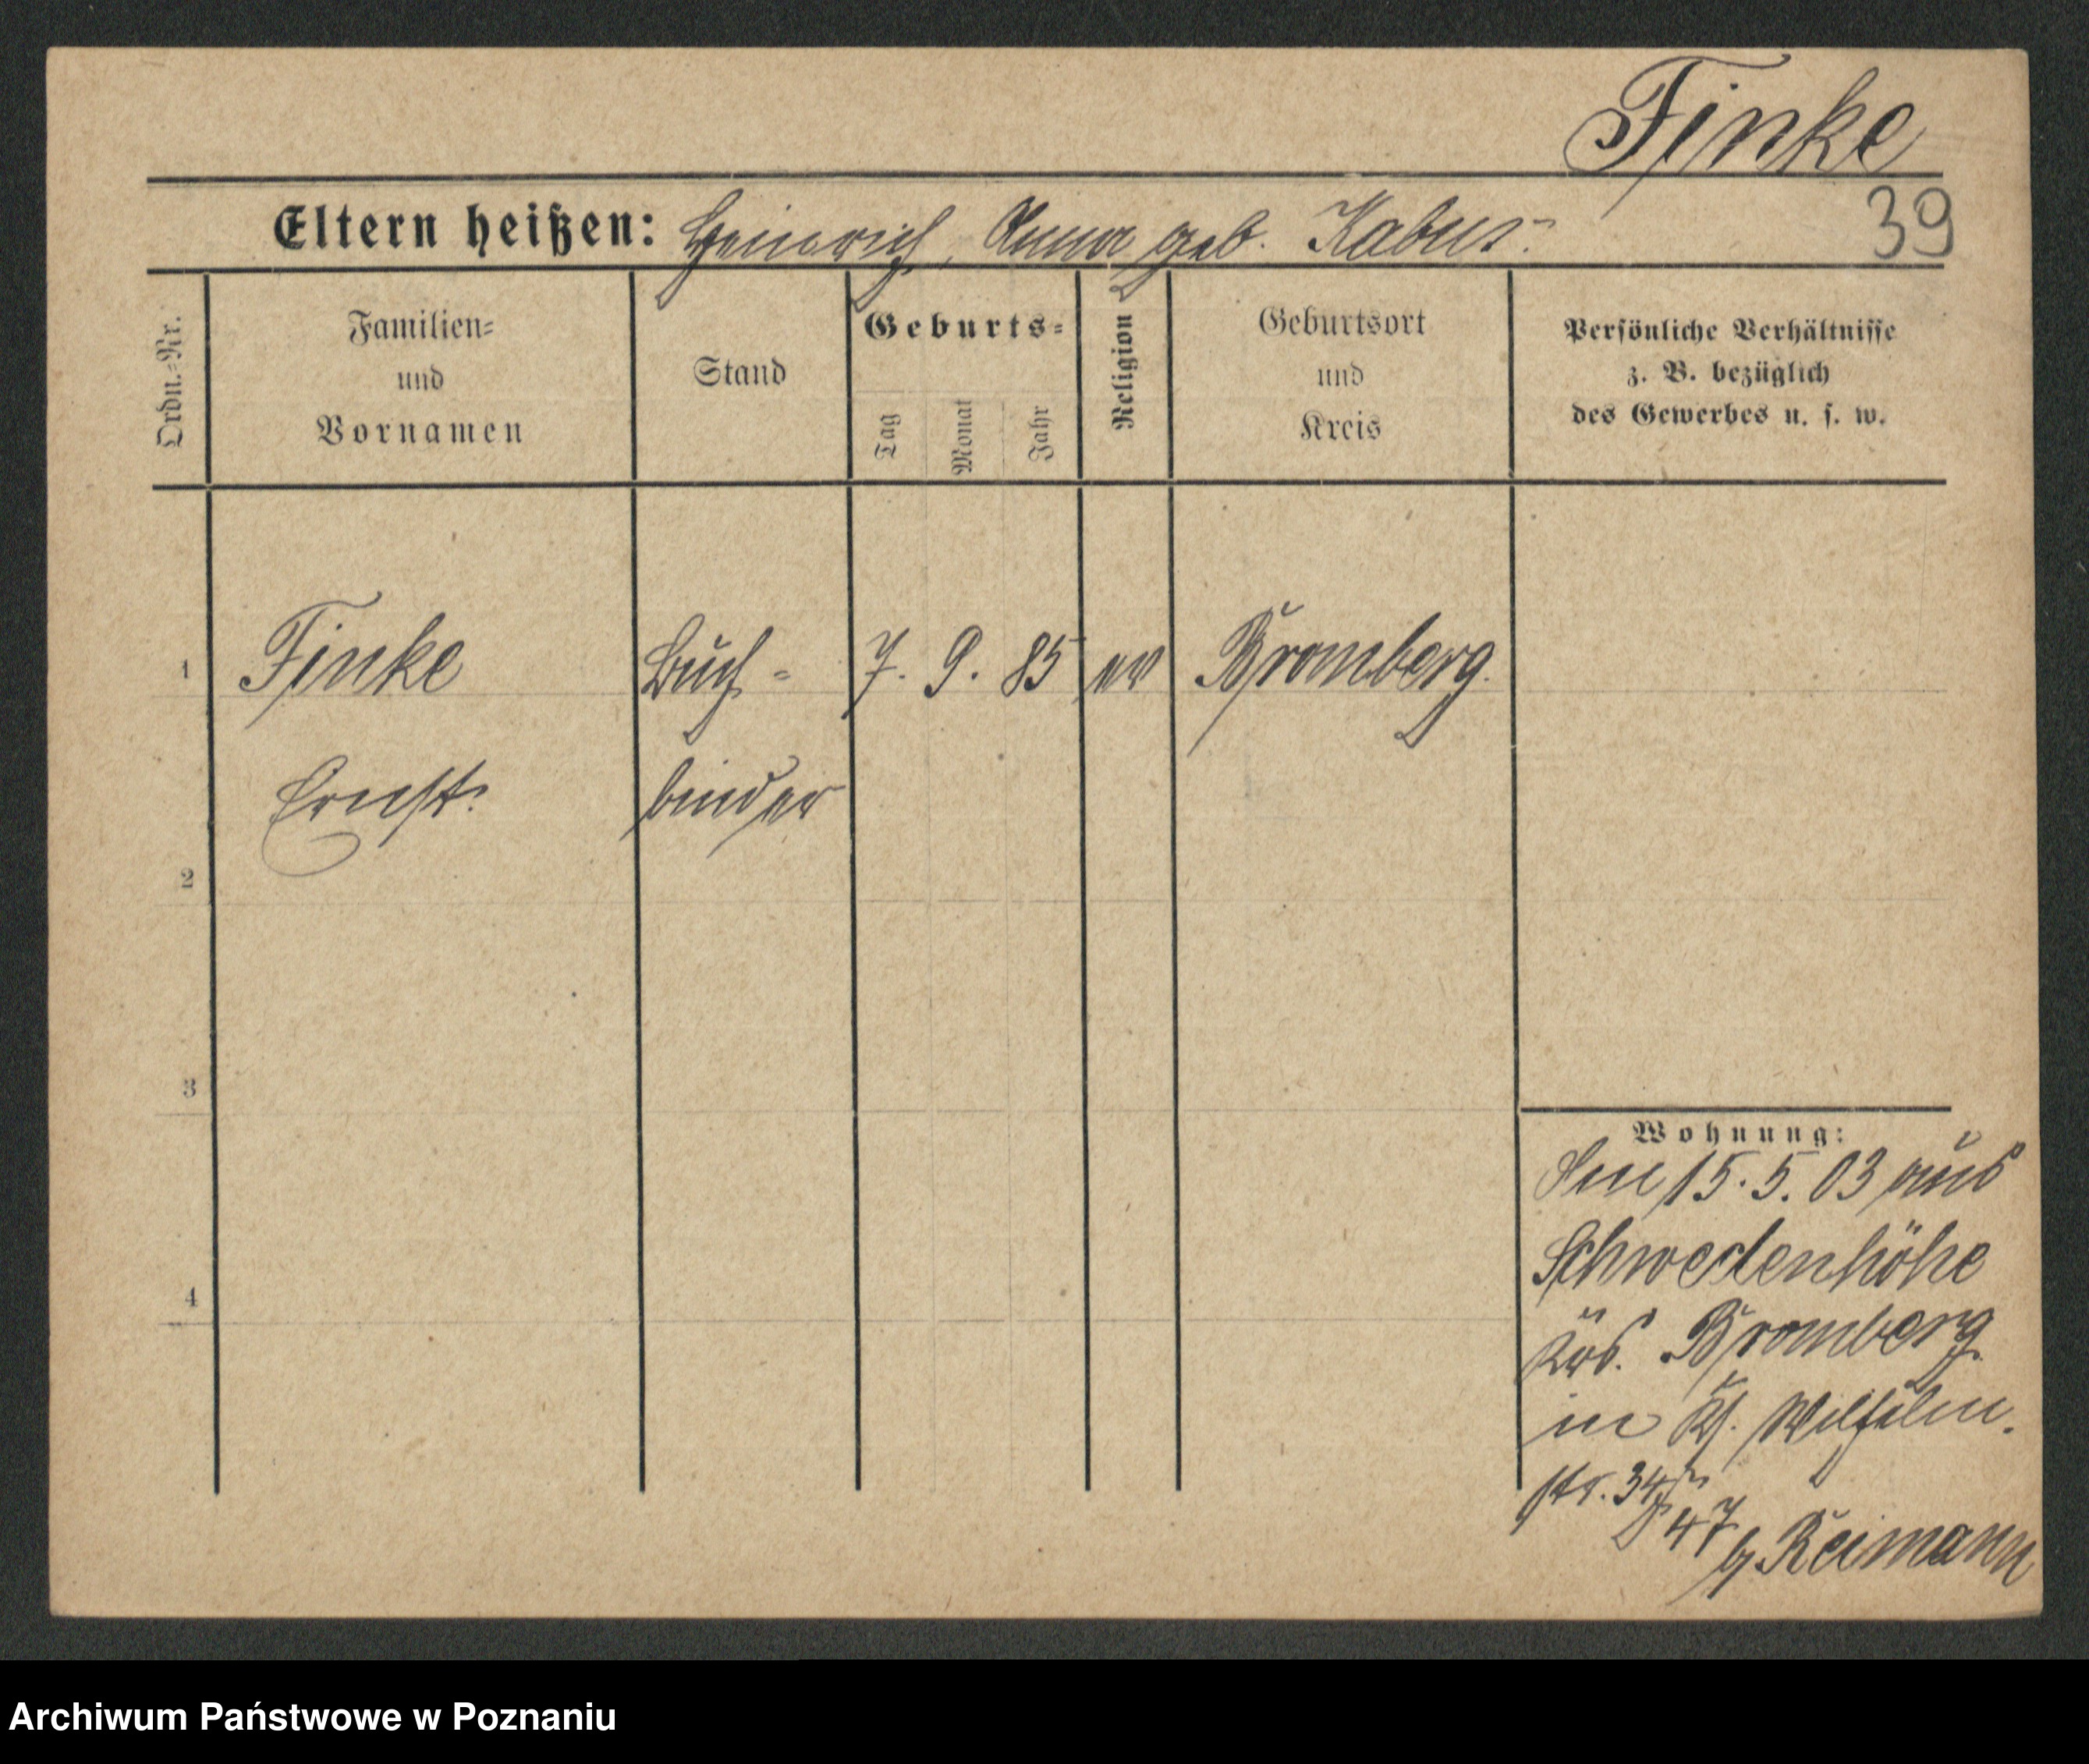 Finke
39
Eltern heißen: Heinrich, Anna geb. Kabus.
Ordn.-Nr.
Familien-
und
Vornamen
Stand
Geburts-
Tag
Monat
Jahr
Religion
Geburtsort
und
Kreis
Persönliche Verhältnisse
z. B. bezüglich
des Gewerbes u. s. w.
1 Finke Buch- 7. 9. 85 ev Bromberg.
Ernst. binder
2
3
4
Wohnung:
Am 15. 5. 03 aus
Schwedenhöhe
Krs. Bromberg
in Kl. Wilhelm-
str. 34
47
b/ Reimann
Archiwum Państwowe w Poznaniu